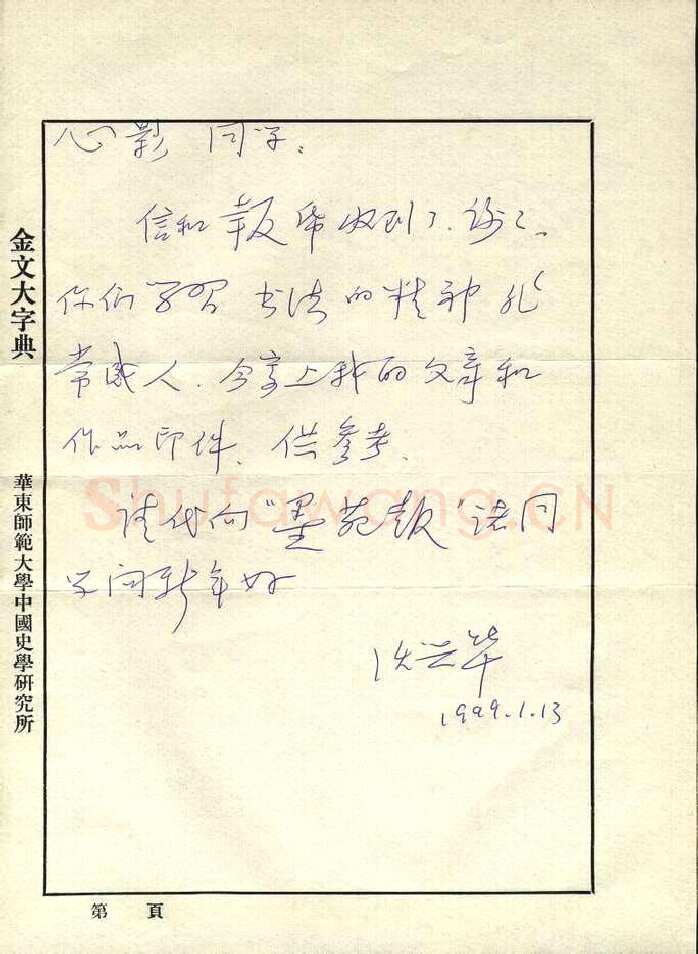 心影 同学：
信和報纸收到了、谢了、
你们学習书法的精神非
常感人、今寄上我的文章和
作品印件、供参考、
请代向“墨苑報”诸同
学问新年好
1999.1.13
金文大字典
華東師範大學中國史學研究所
第 頁
Shufawang.CN